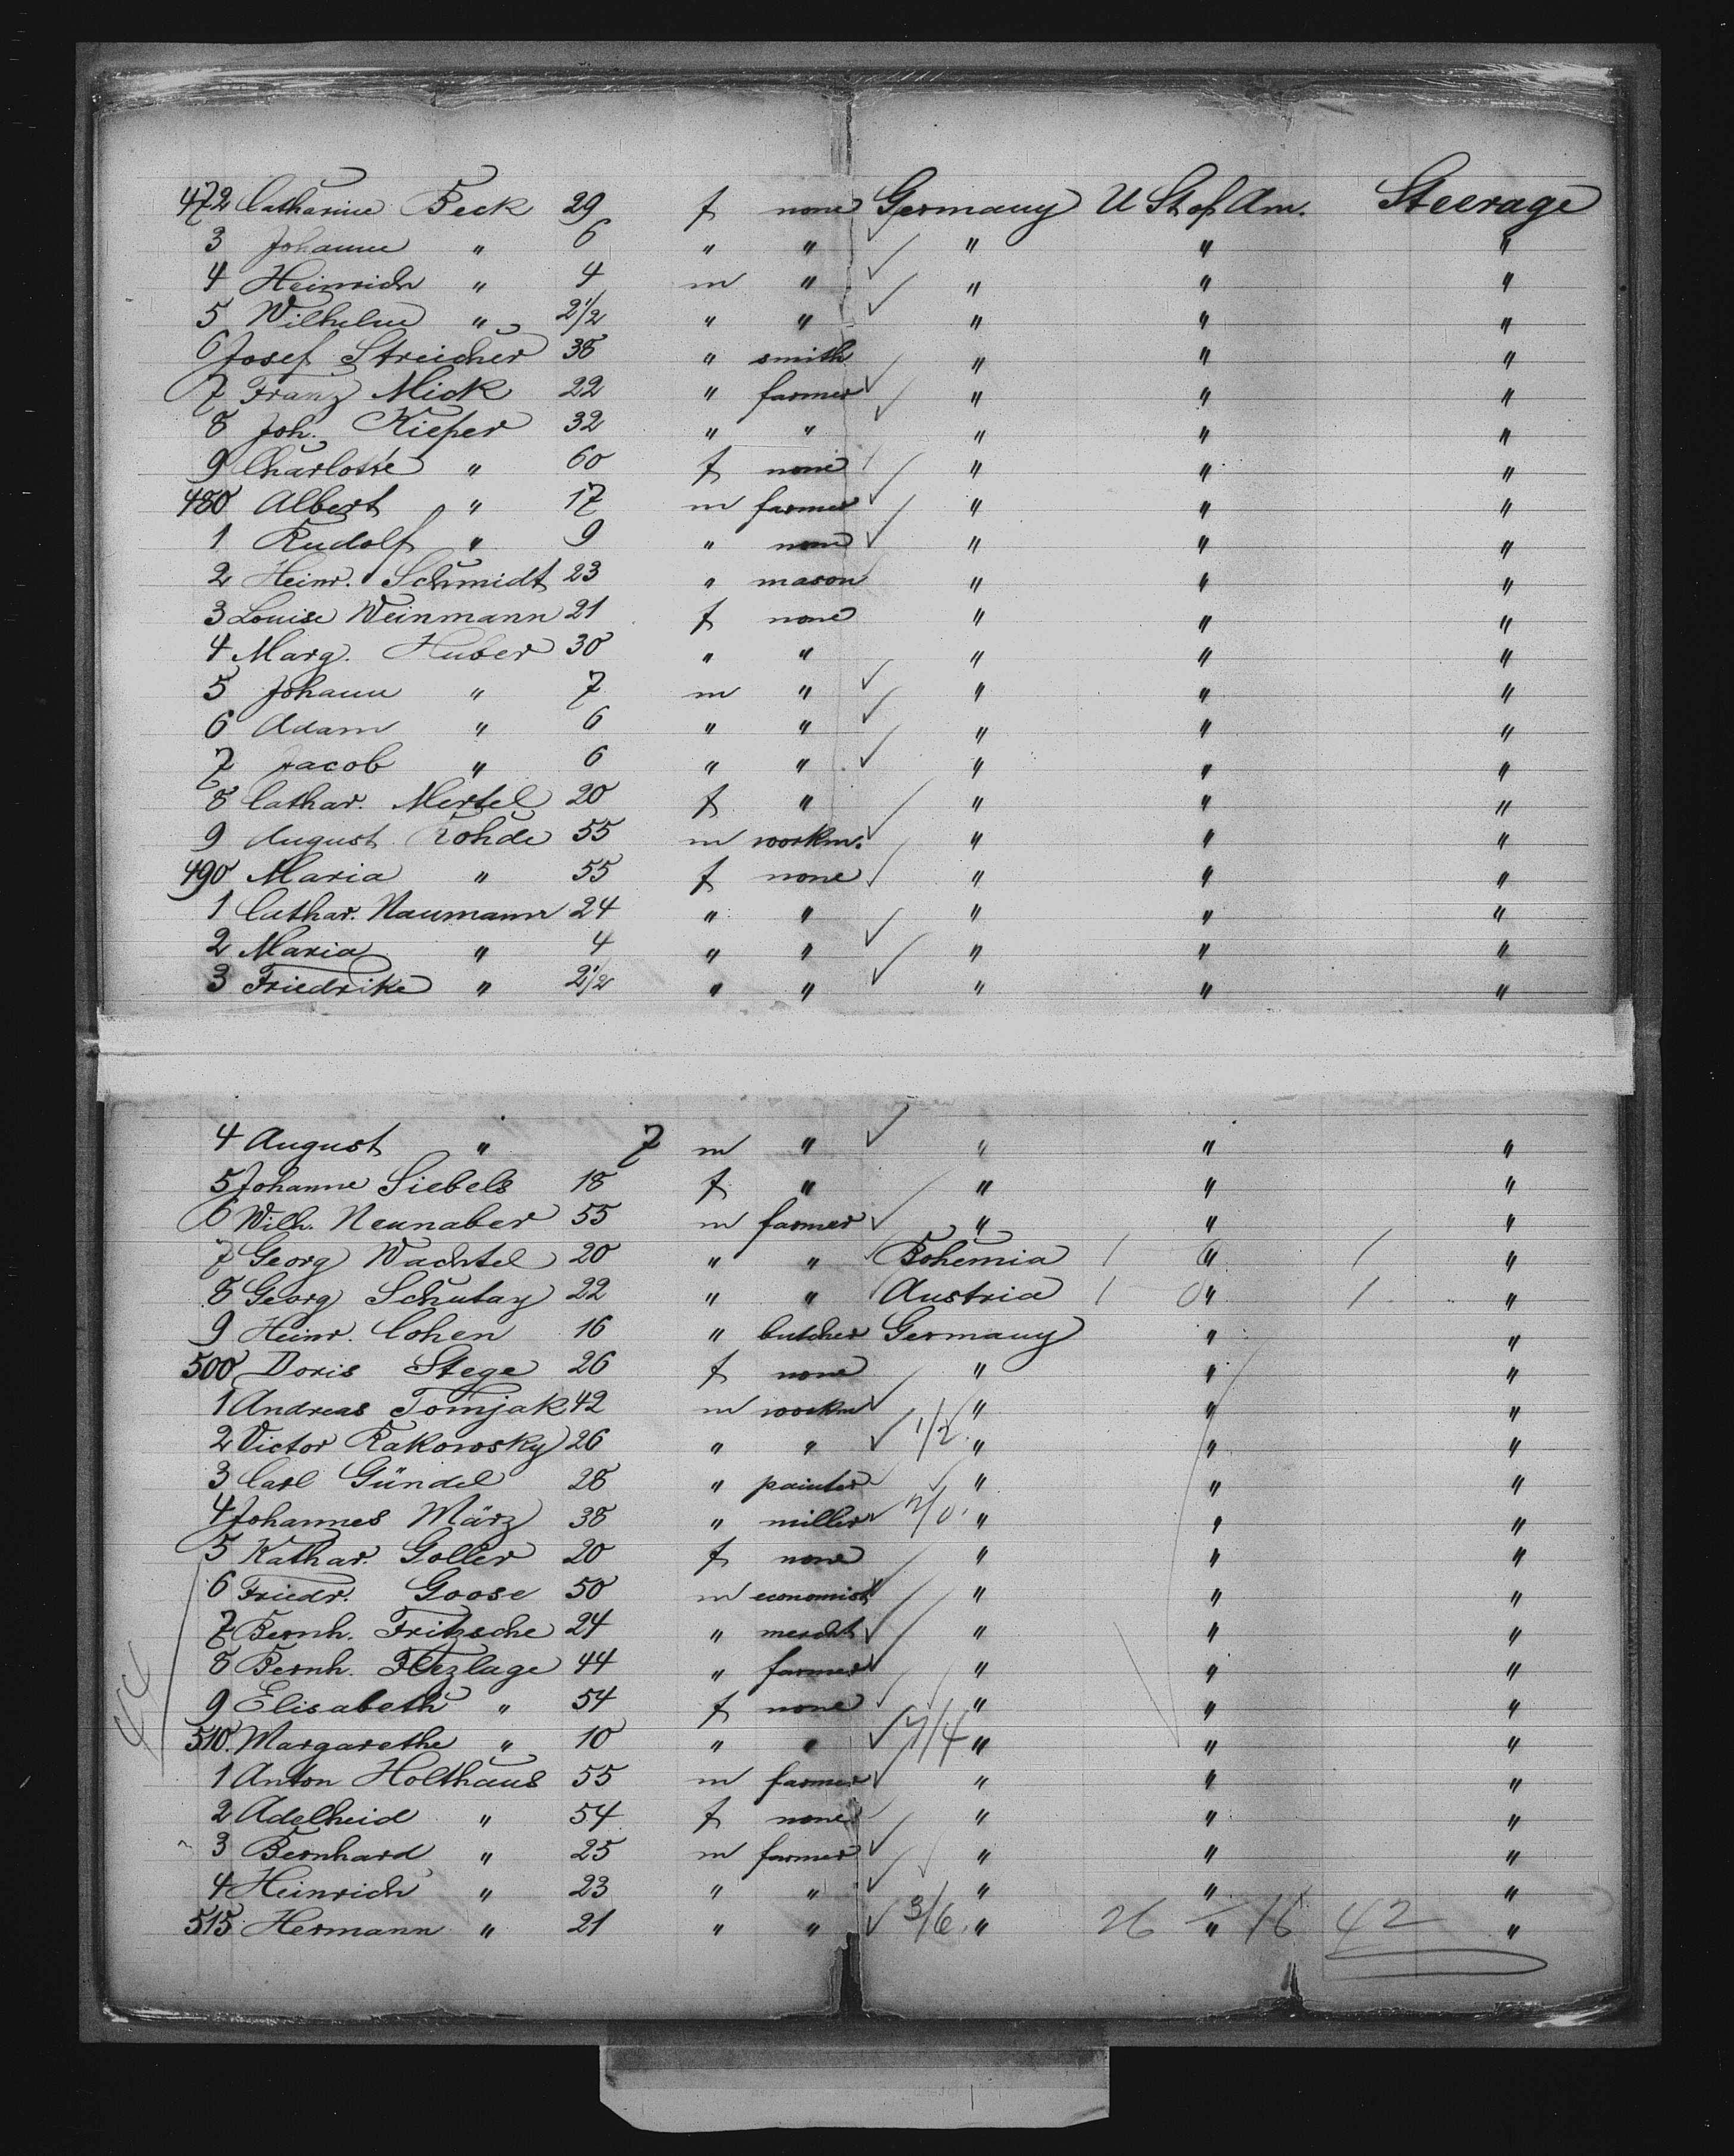 472 Catharine Beck 29 f none Germany U St of Am. Steerage
3 Johanne " 6 " " " " "
4 Heinrich " 4 m " " " "
5 Wilhelm " 2 1/2 " " " " "
6 Josef Streicher 38 " smith " " "
7 Franz Mick 22 " farmer " " "
8 Joh. Kieper 32 " " " " "
9 Charlotte " 60 f none " " "
480 Albert " 17 m farmer " " "
1 Rudolf " 9 " none " " "
2 Heinr. Schmidt 23 " mason " " "
3 Louise Weinmann 21 f none " " "
4 Marg. Huber 30 " " " " "
5 Johann " 7 m " " " "
6 Adam " 6 " " " " "
7 Jacob " 6 " " " " "
8 Cathar. Mertel 20 f " " " "
9 August Rohde 55 m workm. " " "
490 Maria " 55 f none " " "
1 Cathar. Naumann 24 " " " " "
2 Maria " 4 " " " " "
3 Friedrike " 2 1/2 " " " " "
4 August " 7 m " " " "
5 Johanne Siebels 18 f " " " "
6 Wilh. Neunaber 55 m farmer " " "
7 Georg Wachtel 20 " " Bohemia 1 " 1 "
8 Georg Schutay 22 " " Austria 1 0 " 1 "
9 Heinr. Cohen 16 " butcher Germany " "
500 Doris Stege 26 f none " " "
1 Andreas Tomjak 42 m workm " " "
2 Victor Rakowsky 26 " " 1/2 " " "
3 Carl Gündel 28 " painter " " "
4 Johannes März 38 " miller " " "
5 Kathar. Goller 20 f none " " "
6 Friedr. Goose 50 m economist " " "
7 Bernh. Fritzsche 24 " mercht " " "
8 Bernh. Flezlage 44 " farmer " " "
9 Elisabeth " 54 f none " " "
510. Margarethe " 10 " " " " "
1 Anton Holthaus 55 m farmer " " "
2 Adelheid " 54 f none " " "
3 Bernhard " 25 m farmer " " "
4 Heinrich " 23 " " " " "
515 Hermann " 21 " " 3/6 " 26 " 16 42 "